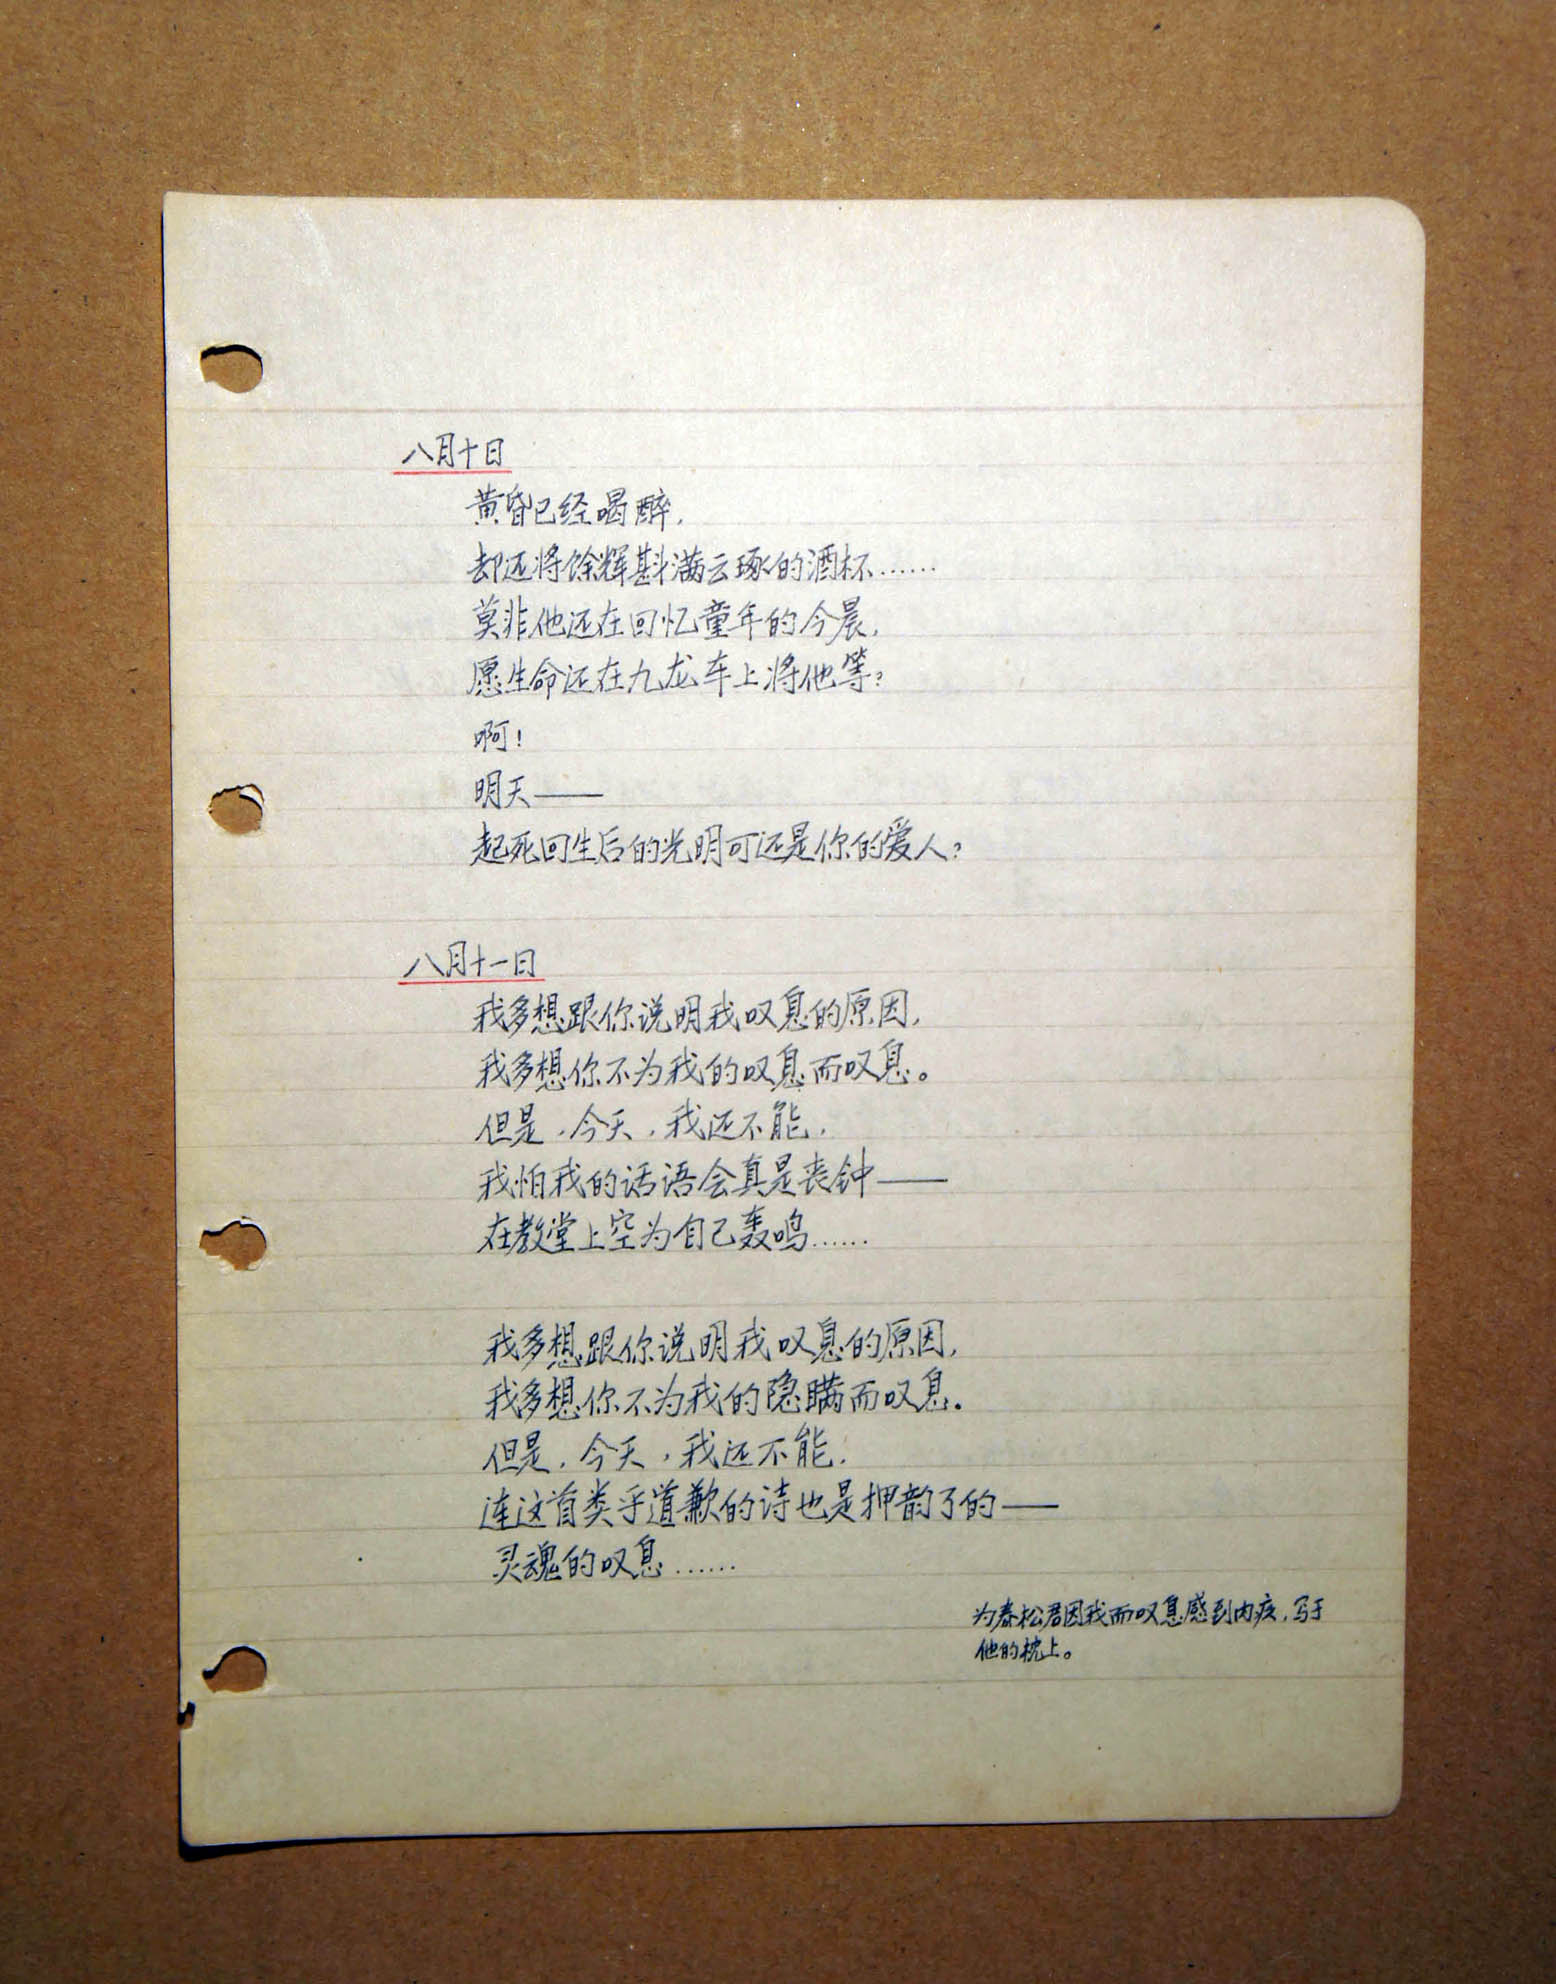 八月十日
黄昏已经喝醉，
却还将馀辉斟满云琢的酒杯……
莫非他还在回忆童年的今晨，
愿生命还在九龙车上将他等？
啊！
明天——
起死回生后的光明可还是你的爱人？
八月十一日
我多想跟你说明我叹息的原因，
我多想你不为我的叹息而叹息。
但是，今天，我还不能，
我怕我的话语会真是丧钟——
在教堂上空为自己轰鸣……
我多想跟你说明我叹息的原因，
我多想你不为我的隐瞒而叹息。
但是，今天，我还不能，
连这首类乎道歉的诗也是押韵了的——
灵魂的叹息……
为春松君因我而叹息感到内疚，写于
他的枕上。